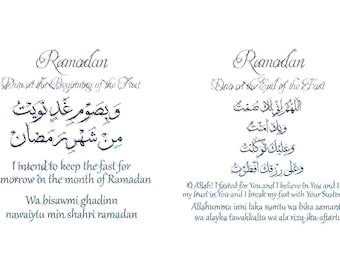 Ramadan
Dua at the Beginning of the Fast
وَبِصَوْمِ غَدٍ نَوَيْتُ
مِنْ شَهْرِ رَمَضَانَ
I intend to keep the fast for
omorrow in the month of Ramadan
Wa bisawmi ghadinn
nawaiytu min shahri ramadan
Ramadan
Dua at the End of the Fast
اَللّٰهُمَّ اِنِّى لَكَ صُمْتُ
وَبِكَ اٰمَنْتُ
وَعَلَيْكَ تَوَكَّلْتُ
وَعَلٰى رِزْقِكَ اَفْطَرْتُ
O Allah! I fasted for You and I believe in You and I
my trust in You and I break my fast with Your Sustena
Allahumma inni laka sumtu wa bika aamant
wa alayka tawakkaltu wa ala rizq-ika-aftartu